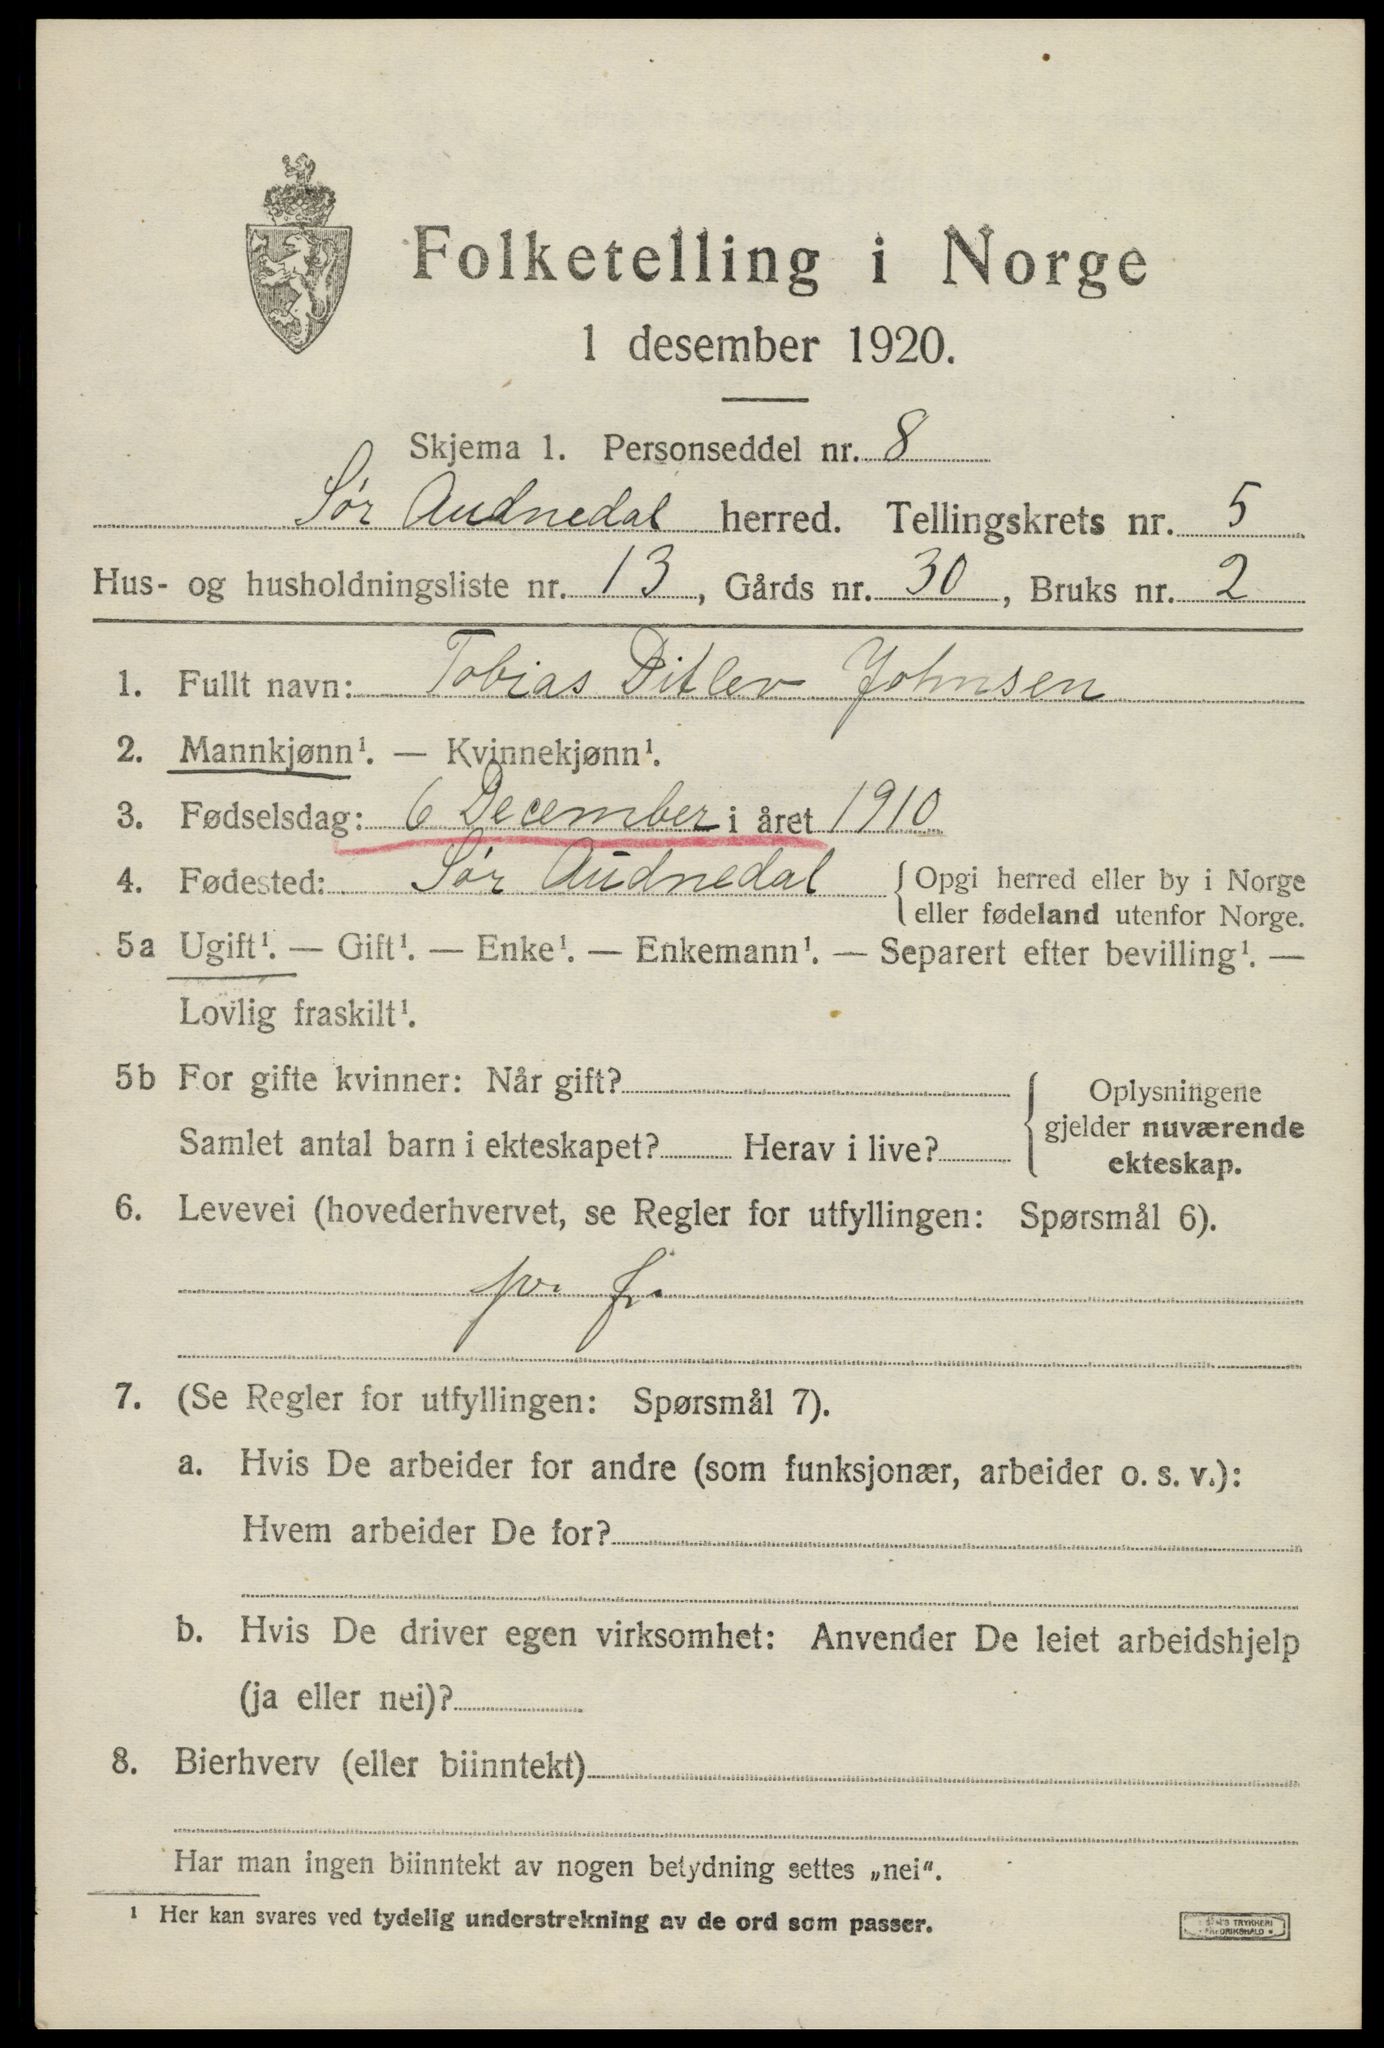 Folketelling i Norge
1 desember 1920.
Skjema 1. Personseddel nr. 8
Sør Audnedal herred. Tellingskrets nr. 5
Hus- og husholdningsliste nr. 13, Gårds nr. 30, Bruks nr. 2
1. Fullt navn: Tobias Ditlev Johnsen
2. Mannkjønn¹. — Kvinnekjønn¹.
3. Fødselsdag: 6 December i året 1910
4. Fødested: Sør Audnedal { Opgi herred eller by i Norge
eller fødeland utenfor Norge.
5a Ugift¹. — Gift¹. — Enke¹. — Enkemann¹. — Separert efter bevilling¹. —
Lovlig fraskilt¹.
5b For gifte kvinner: Når gift?
Samlet antal barn i ekteskapet? Herav i live?
{ Oplysningene
gjelder nuværende
ekteskap.
6. Levevei (hovederhvervet, se Regler for utfyllingen: Spørsmål 6).
7. (Se Regler for utfyllingen: Spørsmål 7).
a. Hvis De arbeider for andre (som funksjonær, arbeider o. s. v.):
Hvem arbeider De for?
b. Hvis De driver egen virksomhet: Anvender De leiet arbeidshjelp
(ja eller nei)?
8. Bierhverv (eller biinntekt)
Har man ingen biinntekt av nogen betydning settes „nei“.
¹ Her kan svares ved tydelig understrekning av de ord som passer.
TRYKKERI